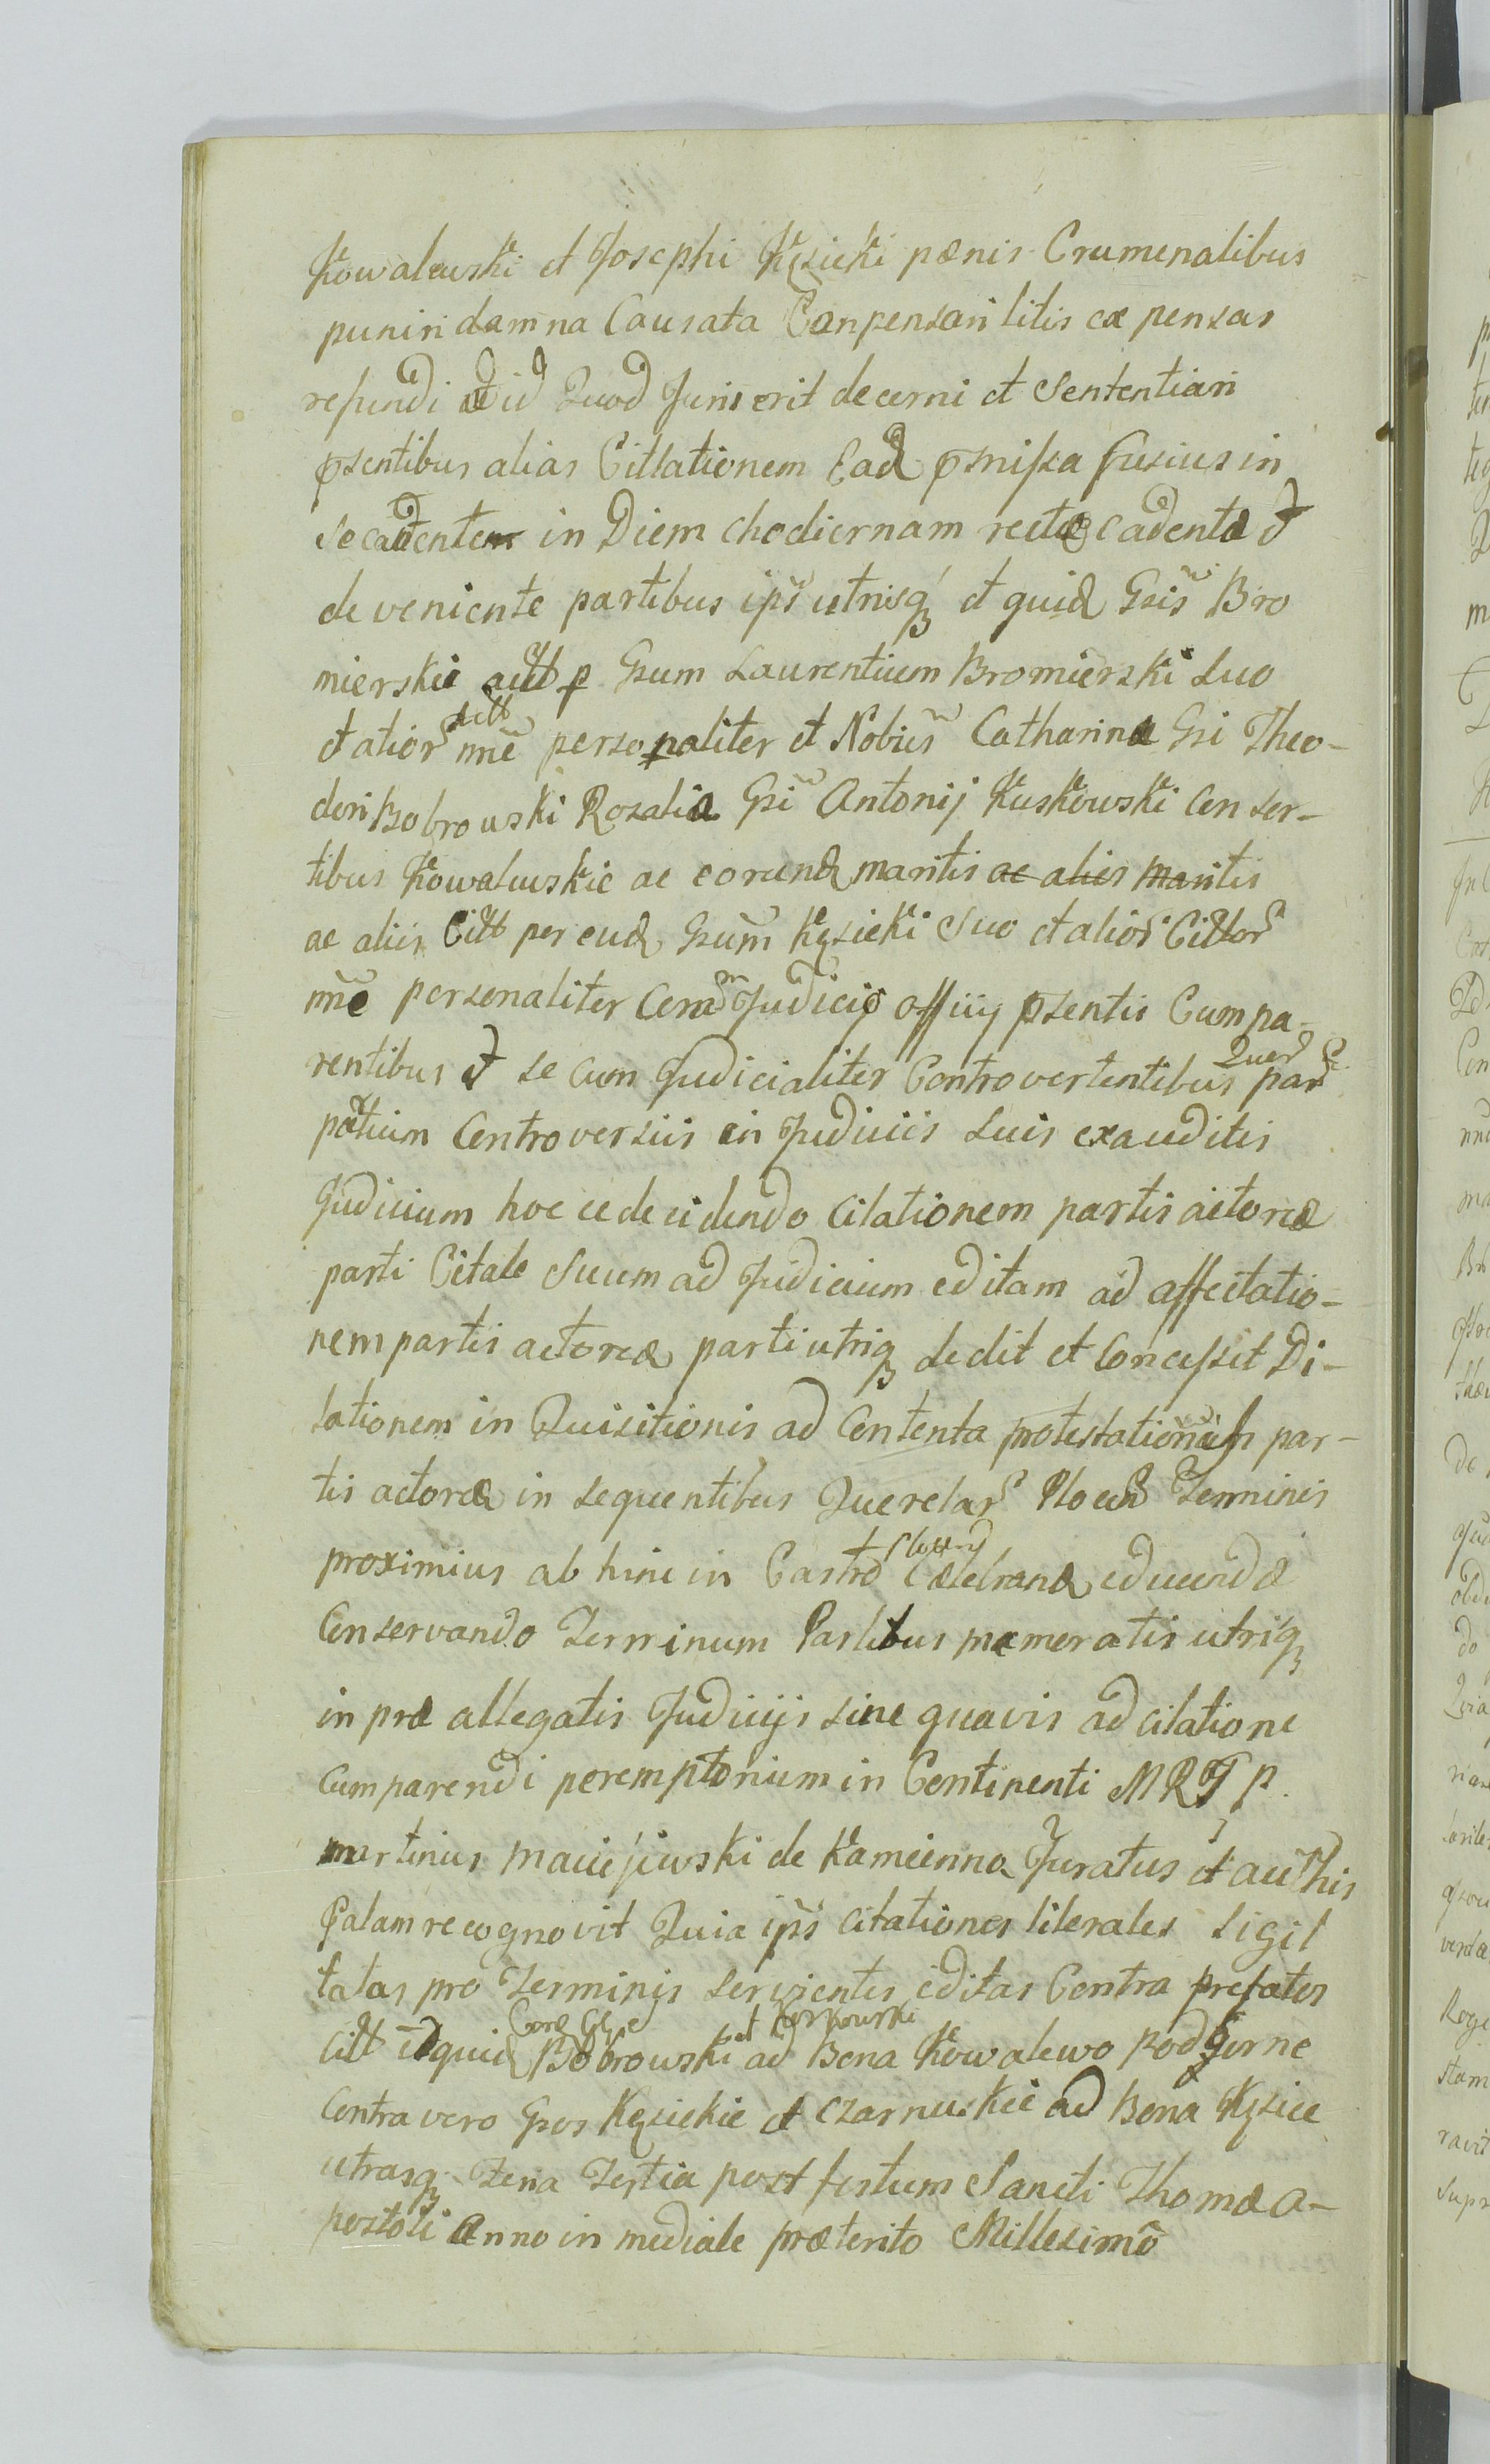 Kowalewski et Josephi Kęsicki pænis Crumenalibus
puniri damna Causata Conpensari litis ex pensas
refundi et id Quod Juris erit decerni et Sententiari
psentibus alias Cittationem Ead pmissa fusius in
se cadente in Diem chodiernam rectæ cadente et
de veniente partibus ips utrisq et quid Gsis Bro
mierskie actt p Gsum Laurentium Bromierski Suo
et alior actt nne personaliter et Nobis Catharina Gsi Theo-
dori Bobrowski Rozalia Gsi Antonij Kuskowski Con sor-
tibus Kowalewskie ac eorund maritis ac aliis maritis
ac aliis Citt per eud Gsum Kęsicki Suo et alior Cittor
nne personaliter Coram Judicio officij psentis Compa-
rentibus et se cum Judicialiter Controvertentibus Quar par
partium Controversiis in Judiciis Suis exauditis
Judicium hoc ce de cidendo Citationem partis actoreæ
parti Citatæ Suum ad Judicium editam ad affectatio-
nem partis actoreæ parti utriq dedit et Concessit Di-
lationem in Quisitionis ad Contenta protestationum par-
tis actoreæ in sequentibus Querelar Plocen Terminis
proximius ab hinc in Castro Plocen Cælebrand educendæ
Conservando Terminum Partibus memoratis utrisq
in præ allegatis Judicijs sine quavis ad citatione
Comparendi peremptorium in Continenti MRTP.
martinus Maciejewski de Kameinna Juratus et authis
Palam recognovit Quia ips citationes literales Sigil
latas pro Terminis servientes editas Contra prefatos
Citt idquid Bobrowski et Kuskowski ad Bona Kowalewo Podgorne
Contra vero Gsos Kęsickie et Czarnuskie ad Bona Kęsice
utrasq feria Tertia post festum Sancti Thomæ A-
postoli Anno in mediate præterito Millesimo